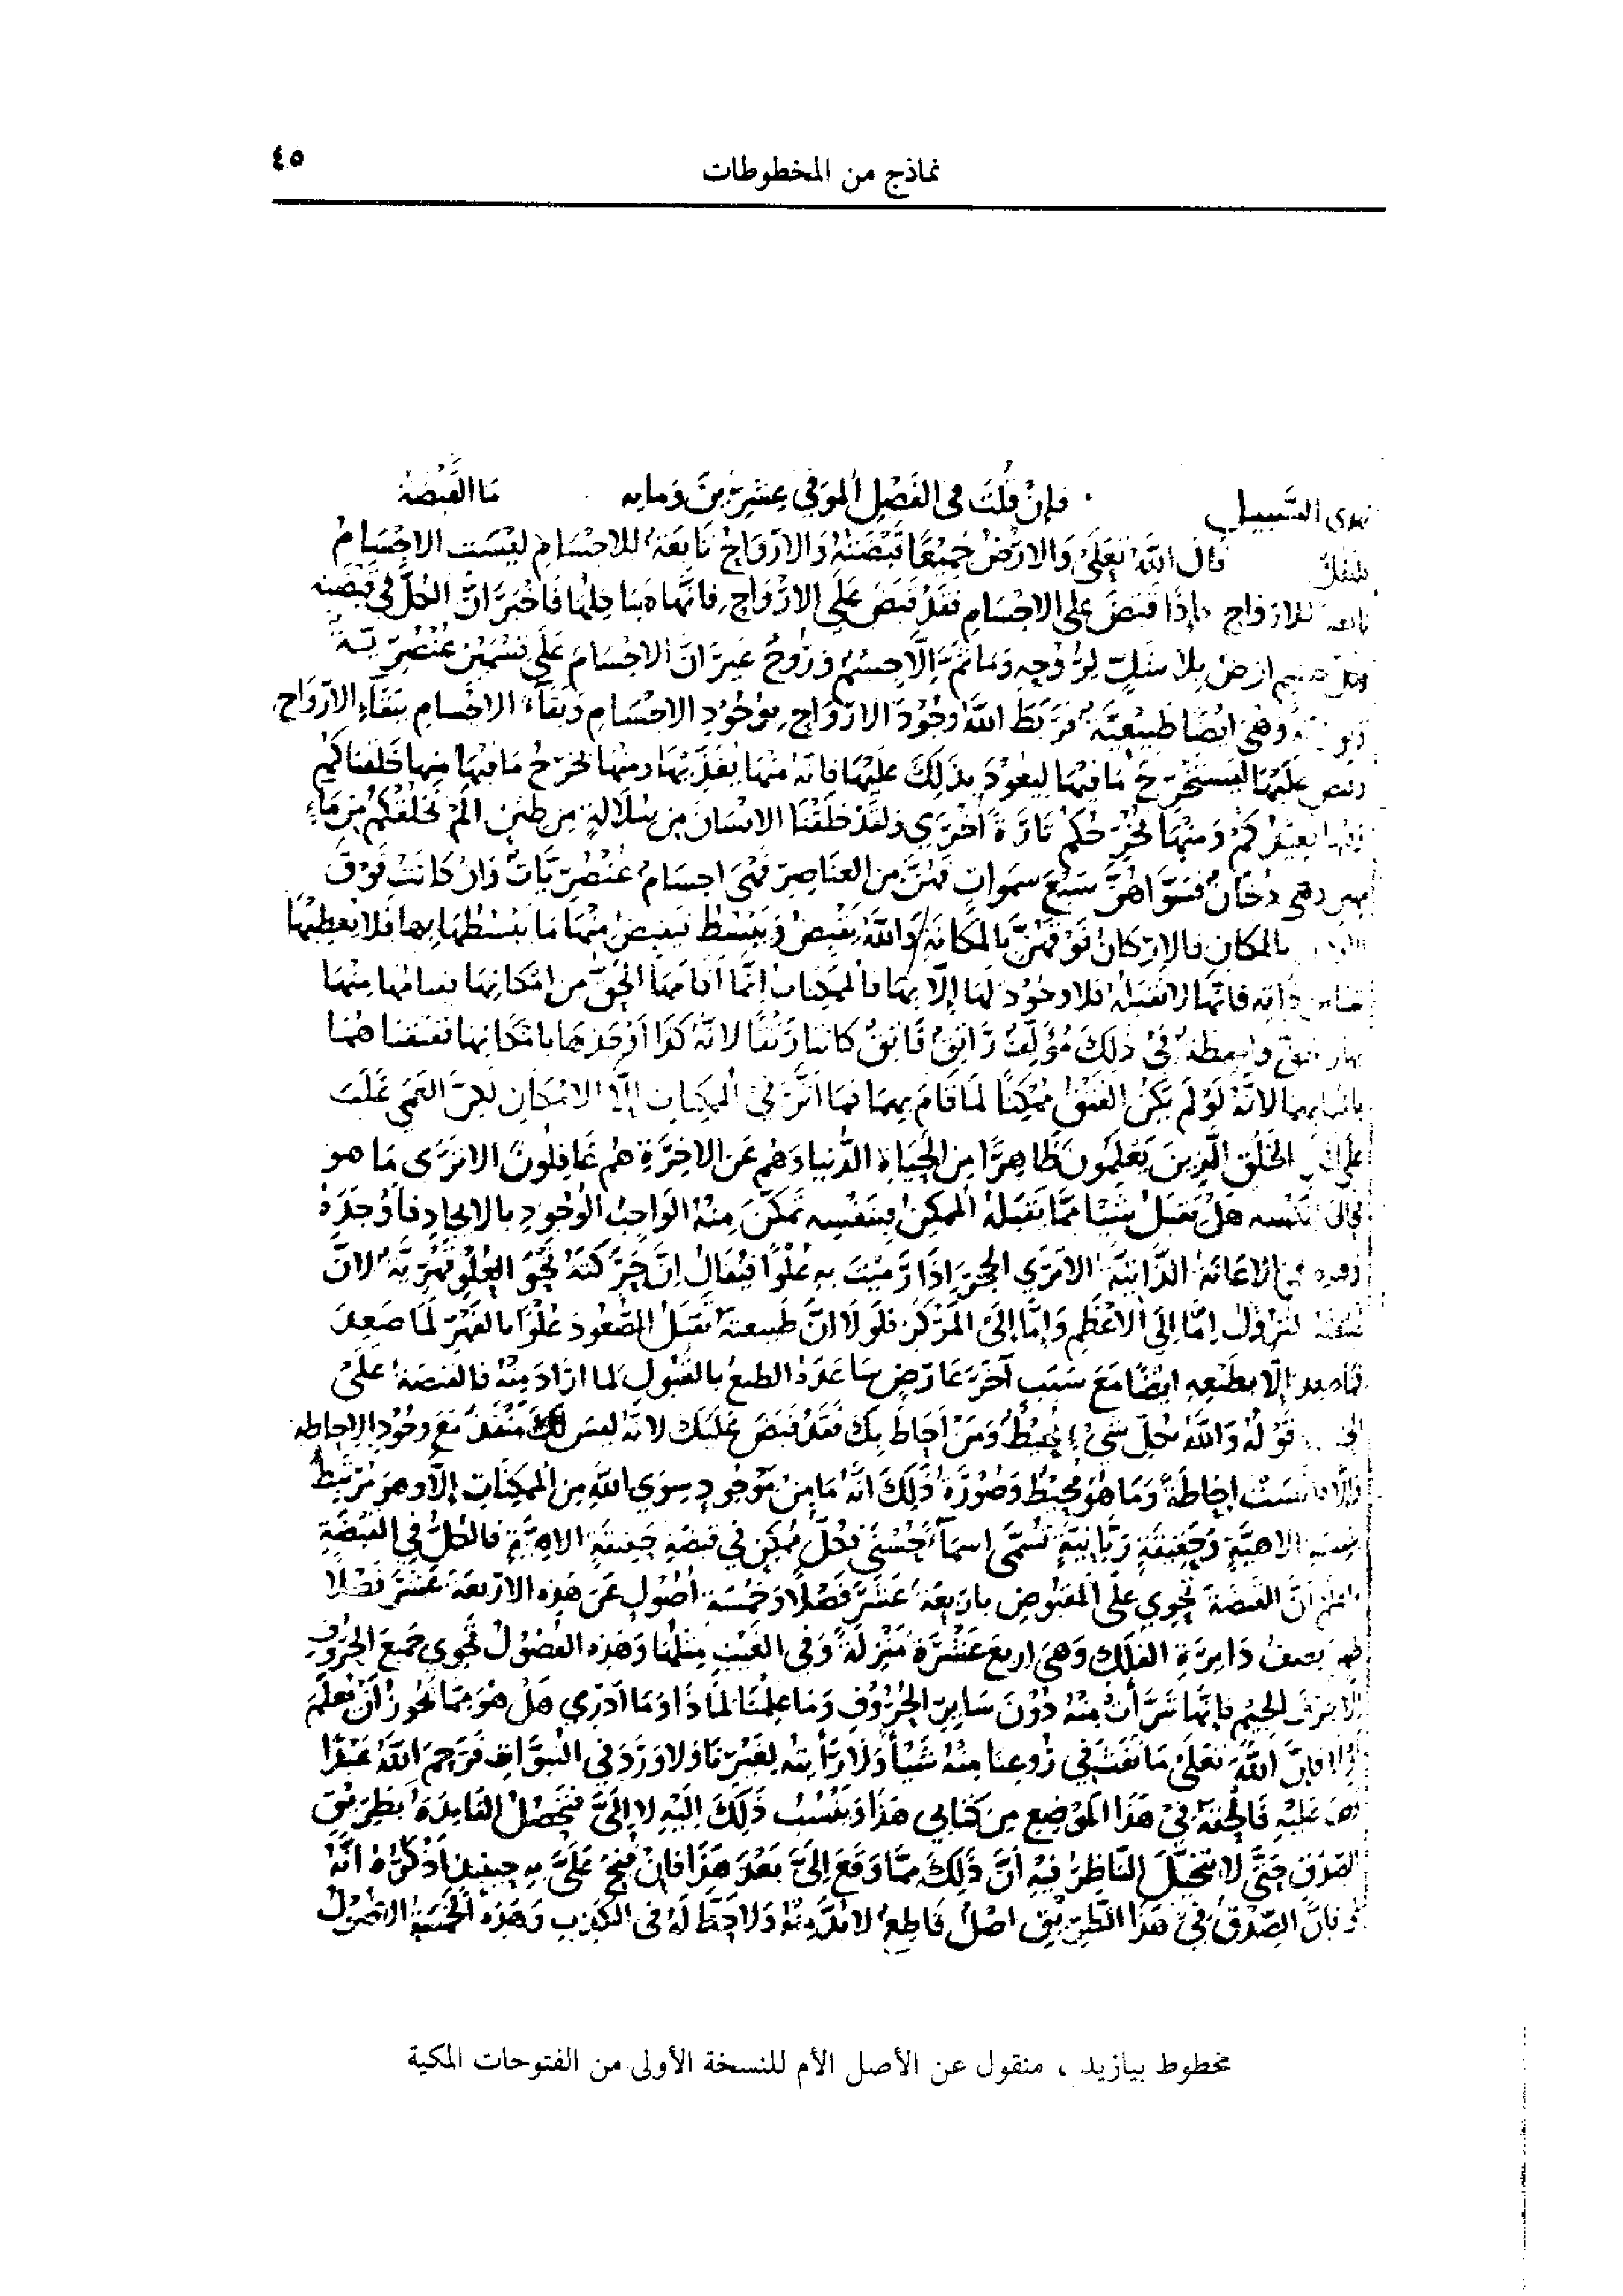 نماذج من المخطوطات
٤٥
يهدى السبيل فَإِنْ قُلْتَ فى الفَصْلِ المُوَفى عِشْرِينَ وَمايه مَا القَبضَة
قال اللهُ تَعَلَى وَالارْضُ جَمِيعًا قَبْضَتُهُ وَالارْوَاحُ تَابِعَة للاجْسَامِ ليْسَت الاجْسَامُ
للارْواح فإذَا قبَضَ على الاجْسَامِ فقَدْ قبَضَ عَلى الارْوَاحِ فانَّهَا هَيَاكِلهَا فَاخبَرَ انّ الكلَّ فى قبْضَتِه
ارْضٌ بِلا شَكٍّ لِرُوحِهِ وَمَا ثَمَّ إِلّا جِسْمٌ وَرُوحٌ غيرَ انّ الاجْسَامَ عَلى قِسْمَيْن عُنْصُرِيّة
وَهِىَ ايْضًا طَبِيعِيَّة فرَبَطَ اللهُ وُجُودَ الارْوَاحِ بوُجُودِ الاجْسَامِ وَبَقَآء الاجْسَامِ ببَقَاءِ الارْوَاح
عَلَيْهَا ليَسْتَخْرِجَ مَا فِيهَا لِيعُودَ بذَلِكَ عليْهَا فانه مِنهَا يُغَذِّيهَا وَمِنْهَا يُخْرِجُ مَا فِيهَا مِنها خَلَقْنَاكُمْ
نُعِيدُكُمْ وَمِنْهَا نُخْرِجُكُمْ تَارَةً اُخْرَى وَلقَدْ خَلَقْنَا الانسَانَ مِن سُلَالَةٍ مِن طِين المْ نَخْلُقْكُمْ مِن مَاءٍ
وَهى دُخَانٌ فسَوَّاهُنَّ سَبْعَ سموَاتٍ فهُنَّ مِن العنَاصِرِ فهْىَ اجسَامٌ عُنْصُرِيَّاتٌ وَان كَانَتْ فَوْقَ
بالمكَانِ فالارْكَانُ فَوْقَهُنَّ بالمكَانَةِ وَاللهُ يَقْبِضُ وَيَبْسُط فيَقبِضُ مِنْهَا مَا يَبْسُطهَا بها فلا يُعْطِيهَا
ذَاتِه فانَّهَا لا تَقْبَلهُ فلا وجُودَ لهَا إِلّا بِهَا فالمُمْكِنَاتُ إِنَّمَا اَقَامَهَا الحَقُّ مِن امْكانِهَا فقِيامُهَا مِنْهَا
وَاسِطَةٌ فى ذَلِكَ مُؤَلِّفٌ رَاتِقٌ فَاتِقٌ كَانَتَا رَتْقًا لانَّهُ كَذَا اَوْجَدَهَا بامْكَانِهَا فَفَتَقْنَاهُمَا
لانَّهُ لَوْ لَمْ يَكُن الفَتْقُ مُمْكِنًا لمَا قَامَ بِهِمَا فمَا اثَّرَ فى المُمْكِنَاتِ إِلَّا الامْكَان لَكِنَّ العَمَى غَلَبَ
الخَلْق الَّذِينَ يَعْلَمُون ظَاهِرًا مِن الحيَاةِ الدُّنيَا وَهُمْ عَن الاخِرَةِ هُمْ غَافِلُونَ الا تَرَى مَا هو
نَفْسِه هَلْ يَقْبَلُ شَيْئًا مِمَّا يَقْبَلُهُ المُمْكِنُ فبِنَفْسِهِ تَمَكَّنَ مِنْهُ الوَاجِبُ الْوُجُودِ بالايجَادِ فَأَوْجَدَهُ
الاعَانَة الذَّاتِيَّة الا تَرَى الحجَرَ اِذَا رَمَيْتَ بِهِ عُلْوًا فيُقَالُ اِنَّ حَرَكَتَهُ نَحْوَ العُلْوِ قَهْرِيَّة لانّ
النزُولُ اِمَّا إِلى الأعْظَم وَإِمَّا إِلَى المَرْكَز فلَوْلا انَّ طَبِيعَتَهُ تَقْبَلُ الصُّعُودَ عُلْوًا بالقَهْرِ لَمَا صَعِدَ
إِلّا بِطَبْعِهِ ايْضًا مَعَ سَبَب آخَرَ عَارِضٍ سَاعَدَهُ الطبعُ بالقَبُول لِما اَرَادَ مِنْهُ فالقَبضَة عَلَى
قَوْلُهُ وَاللهُ بكُلِّ شىْءٍ مُحِيْطٌ وَمَنْ اَحَاطَ بِكَ فَقَدْ قبَضَ عَلَيْكَ لانَّهُ ليسَ لكَ مَنْفَذٌ مَعَ وجُودِ الاِحاطه
لَيْسَتْ اِحَاطَةً وَمَا هُوَ مُحِيْطٌ وَصُورَةُ ذَلِكَ انَّهُ مَا مِنْ مَوْجُودٍ سِوَى اللهِ مِن المُمكِنَاتِ اِلّا وهوَ مُرْتَبِطٌ
الاهيَّةٍ وَحَقِيقَةٍ رَبَّانِيَّةٍ تُسَمَّى اسمآءً حُسْنَى فكُلّ مُمْكِنٍ فى قبضَةِ حَقِيقَةٍ الاهِيَّةٍ فالكُلُّ فى القَبْضَةِ
اَنَّ القَبضَة تَحْوِى عَلَى المَقْبُوضِ بارْبَعَة عَشَرَ فَصْلًا وَخَمْسَة اُصُولٍ عَن هَذِه الارْبعَةَ عَشَرَ فَصْلًا
نِصْف دَايِرَةِ الفلَكِ وَهىَ اربعَ عَشْرَة مَنْزِلَةً وَفى الغَيْب مِثْلُهَا وَهَذِه الفُصُولُ تَحْوِى جَمِيعَ الحُرُوفِ
الا حَرْفَ الجِيْم فإِنَّهَا تَبَرَّأتْ مِنْهُ دُونَ سَايِرِ الحُرُوفِ وَمَا عَلِمْنَا لمَا ذَا وَمَا اَدْرِى هَلْ هُوَ مِمَّا يَجُوزُ اَنْ يُعلَمَ
فاِنَّ اللهَ تَعَلَى مَا نَفَثَ فى رُوعِنَا مِنْهُ شَيْأً وَلا رَأيْتُه لِغَيْرِنَا وَلا وَرَدَ فى النُبُوَّاتِ فَرَحِمَ اللهُ عَبْدًا
عَلَيْهِ فَالْحَقَهُ فى هَذَا المَوْضِع مِن كتَابى هَذَا وَيَنْسُبُ ذَلِكَ اليْهِ لا اِلَىَّ فتَحْصُلُ الفَايِدَة بِطَرِيْق
الصِّدْق حَتَّى لا يَتَخَيَّلَ النَّاظِرُ فِيْهِ اَنَّ ذَلِكَ مِمَّا وَقَعَ اِلَىَّ بَعْدَ هَذَا فاِنْ فُتِحَ عَلَىَّ بِهِ حِينَئِذٍ اَذْكُرُهُ انَّهُ
فاِنَّ الصِّدْقَ فى هَذَا الطَّرِيْقِ اصْلٌ قَاطِعٌ لا بُدَّ مِنْهُ وَلا حَظَّ لَهُ فى الكَذِبِ وَهَذِه الخَمْسَة الاصُولُ
مخطوط بيازيد ، منقول عن الأصل الأم للنسخة الأولى من الفتوحات المكية